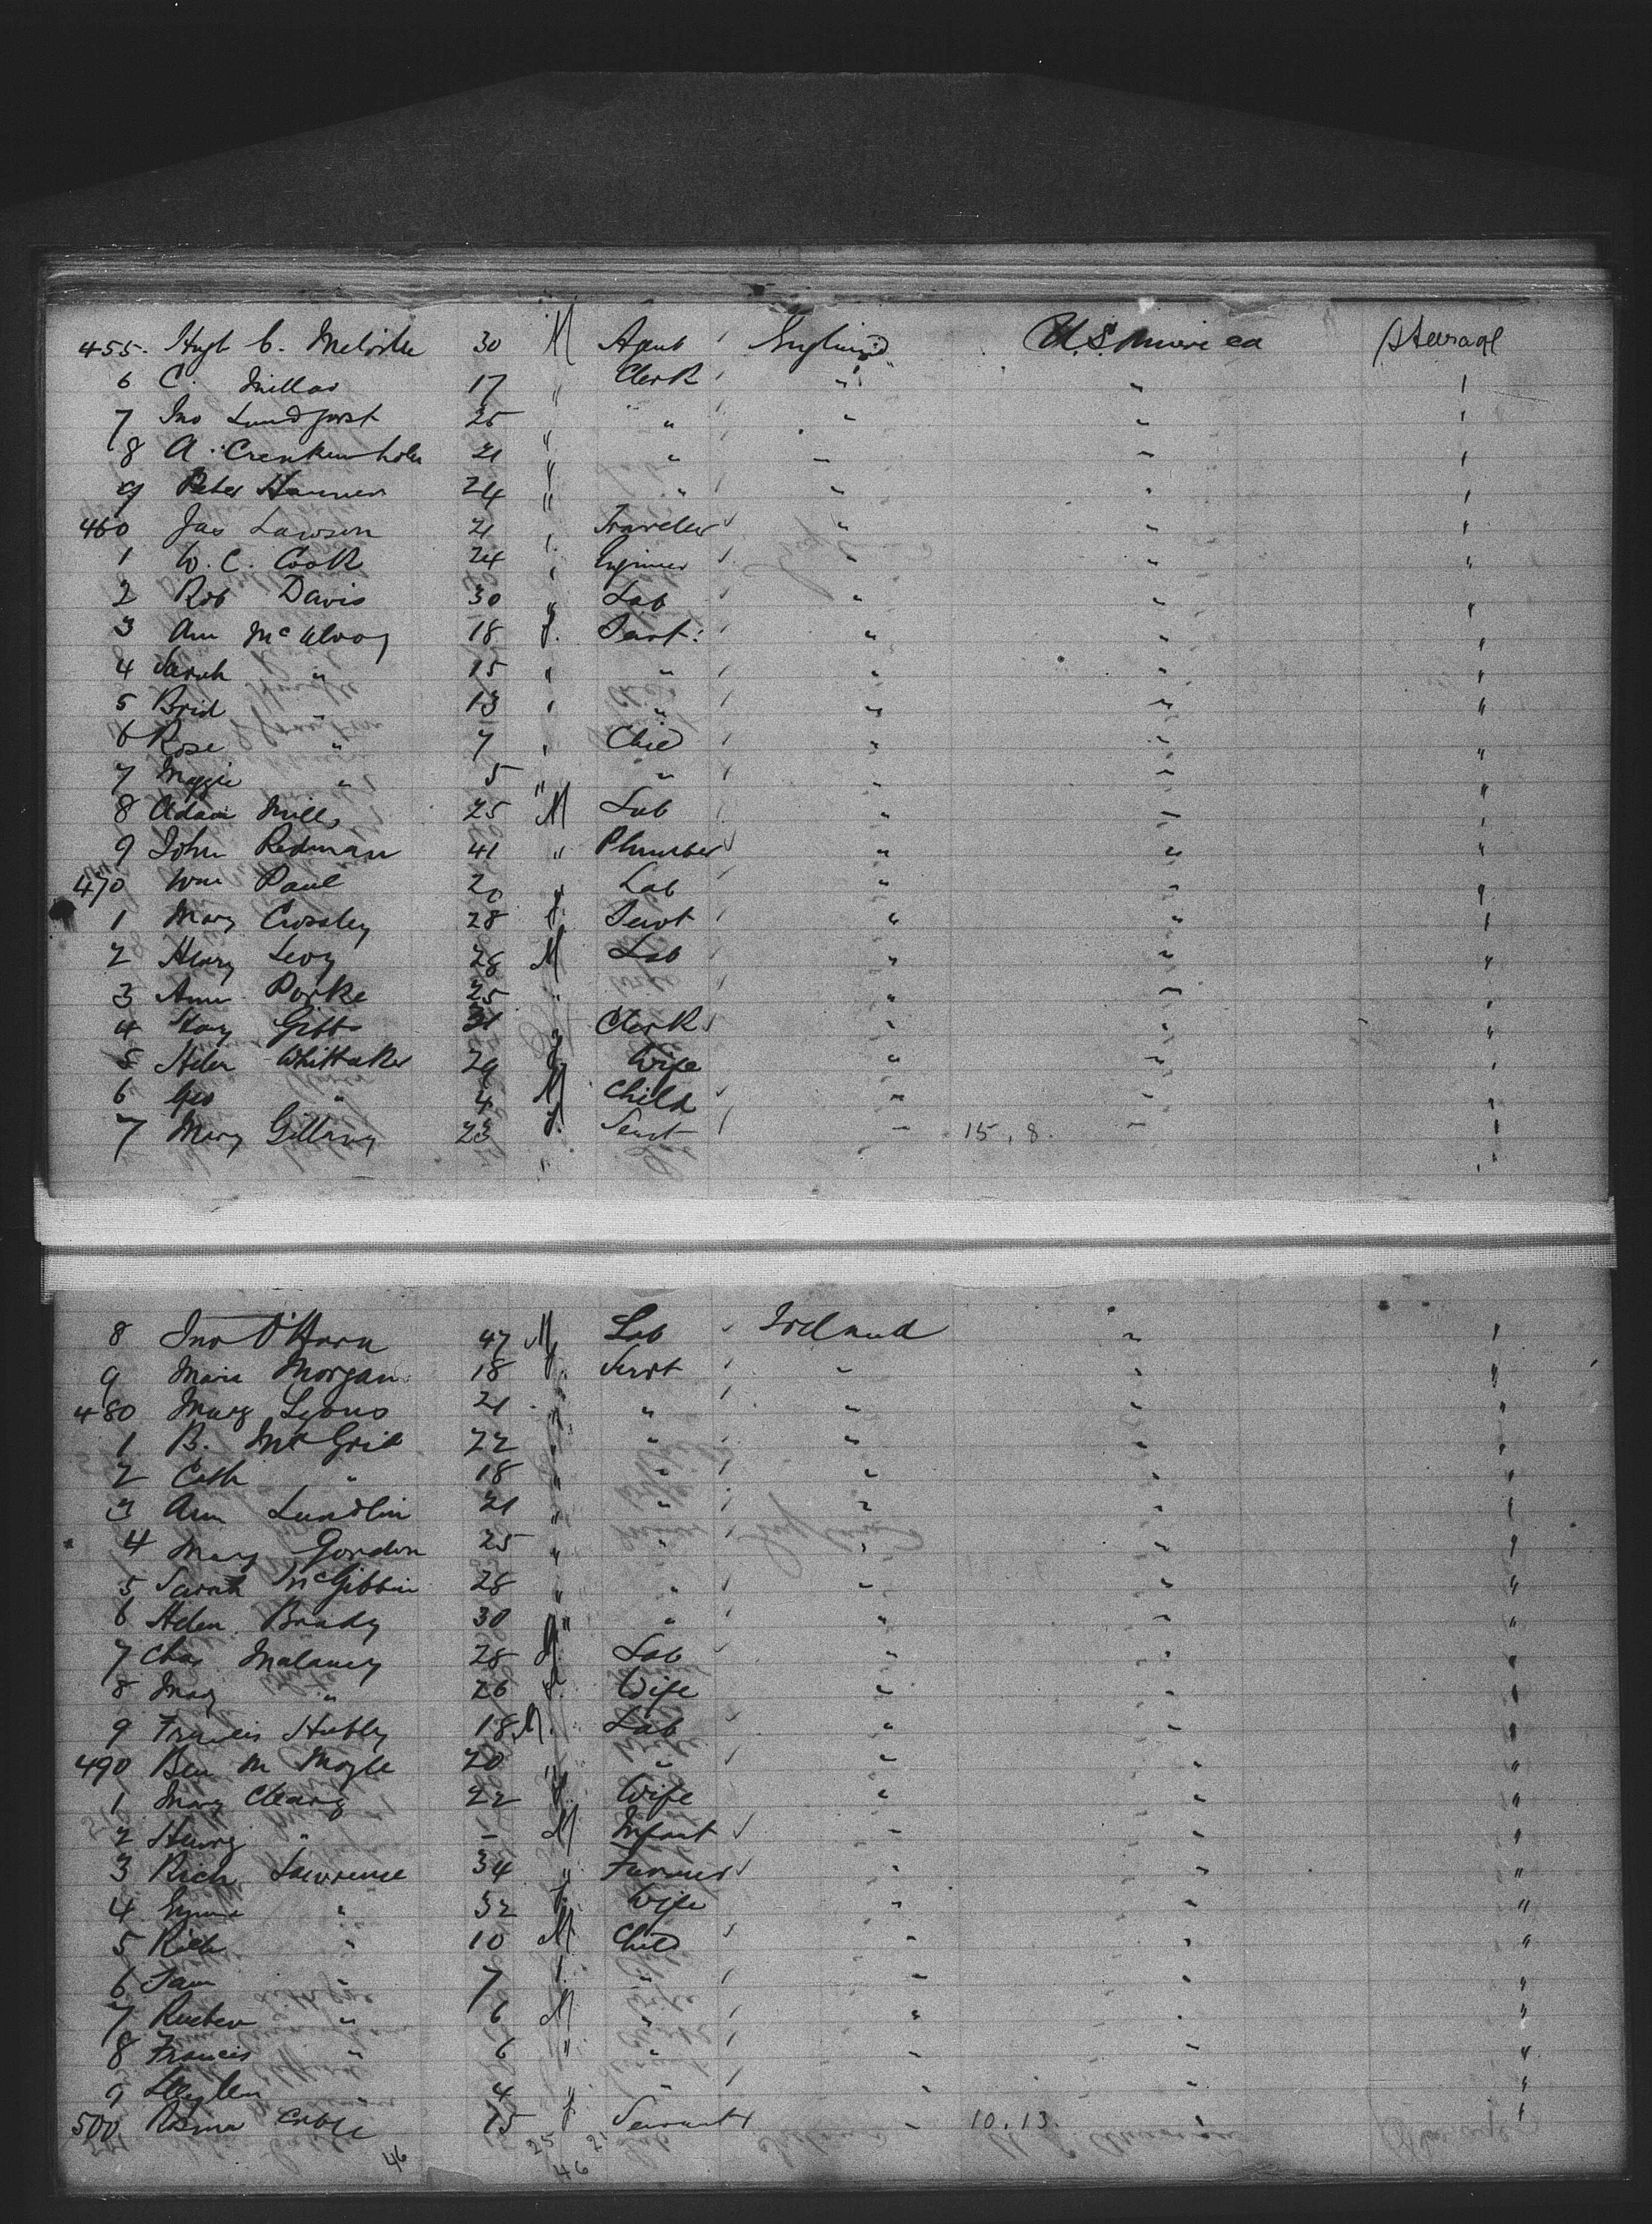 455. Hugh C. Melville 30 M Agent England U.S. America Steerage
6 C. Millar 17 " Clerk " " "
7 Jno Lundqvist 25 " " " " "
8 A. 21 " " " " "
9 Peter 24 " " " " "
460 Jas Lawson 21 " Traveller " " "
1 W. C. Cook 24 " Engineer " " "
2 Rob Davis 30 " Lab " " "
3 Ann McAlvoy 18 f. Servt: " " "
4 Sarah " 15 " " " " "
5 Brid " 13 " " " " "
6 Rose " 7 " Child " " "
7 Maggie " 5 " " " " "
8 Adam Mills 25 M Lab " " "
9 John Redman 41 " Plumber " " "
470 Wm Paul 20 " Lab " " "
1 Mary Crossley 28 f. Servt " " "
2 Henry Levy 28 M Lab " " "
3 Ann 25 " " " "
4 Gibbs 31 " Clerk " " "
5 Helen Whittaker 29 f. Wife " " "
6 Geo " 4 M Child " " "
7 Mary 23 f. Servt " 15.8. " "
8 Jno O'Hara 47 M Lab Ireland " "
9 Maria Morgan 18 f. Servt " " "
480 Mary Lyons 21 " " " " "
1 B. 22 " " " " "
2 Cath " 18 " " " " "
3 Ann Lundlin 21 " " " " "
4 Mary Gordon 25 " " " " "
5 Sarah McGibbin 28 " " " " "
6 Helen Brady 30 " " " " "
7 Chas Malaney 28 M. Lab " " "
8 Mary " 26 f. Wife " " "
9 Francis 18 M. Lab " " "
490 Ben M Moyle 20 " " " " "
1 Mary Cleary 22 f. Wife " " "
2 Henry " - M Infant " " "
3 Rich Lawrence 34 " Farmer " " "
4 " 32 f. Wife " " "
5 Rich " 10 M Child " " "
6 " 7 f. " " " "
7 Rueben " 6 M " " " "
8 Francis " 6 " " " " "
9 " 4 f " " " "
500 Rosina 15 f Servant " 10.13. " "
46 25 21
46